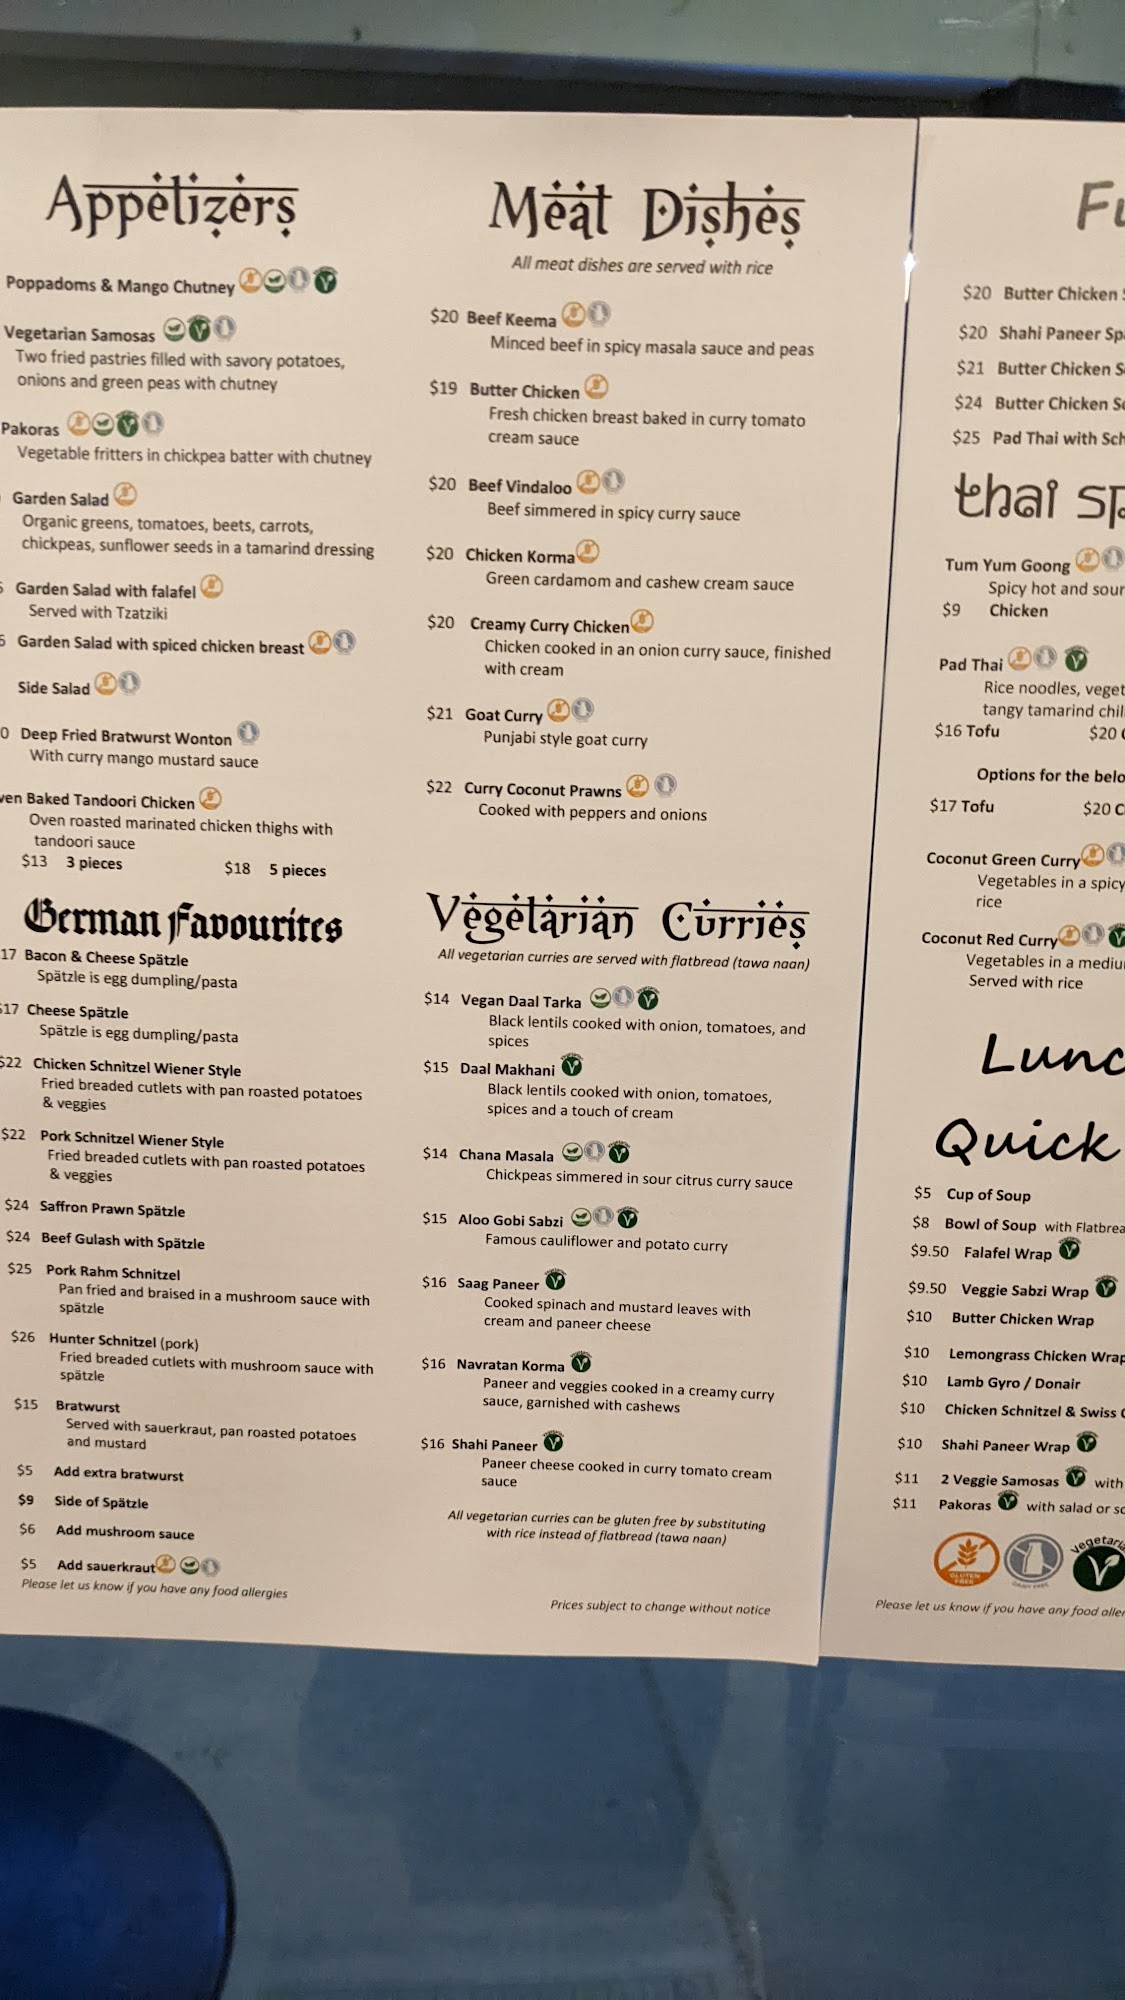 Appetizers
Poppadoms & Mango Chutney
Vegetarian Samosas
Two fried pastries filled with savory potatoes,
onions and green peas with chutney
Pakoras
Vegetable fritters in chickpea batter with chutney
Garden Salad
Organic greens, tomatoes, beets, carrots,
chickpeas, sunflower seeds in a tamarind dressing
Garden Salad with falafel
Served with Tzatziki
Garden Salad with spiced chicken breast
Side Salad
0 Deep Fried Bratwurst Wonton
With curry mango mustard sauce
ven Baked Tandoori Chicken
Oven roasted marinated chicken thighs with
tandoori sauce
$13 3 pieces $18 5 pieces
German Favourites
17 Bacon & Cheese Spätzle
Spätzle is egg dumpling/pasta
$17 Cheese Spätzle
Spätzle is egg dumpling/pasta
$22 Chicken Schnitzel Wiener Style
Fried breaded cutlets with pan roasted potatoes
& veggies
$22 Pork Schnitzel Wiener Style
Fried breaded cutlets with pan roasted potatoes
& veggies
$24 Saffron Prawn Spätzle
$24 Beef Gulash with Spätzle
$25 Pork Rahm Schnitzel
Pan fried and braised in a mushroom sauce with
spätzle
$26 Hunter Schnitzel (pork)
Fried breaded cutlets with mushroom sauce with
spätzle
$15 Bratwurst
Served with sauerkraut, pan roasted potatoes
and mustard
$5 Add extra bratwurst
$9 Side of Spätzle
$6 Add mushroom sauce
$5 Add sauerkraut
Please let us know if you have any food allergies
Meat Dishes
All meat dishes are served with rice
$20 Beef Keema
Minced beef in spicy masala sauce and peas
$19 Butter Chicken
Fresh chicken breast baked in curry tomato
cream sauce
$20 Beef Vindaloo
Beef simmered in spicy curry sauce
$20 Chicken Korma
Green cardamom and cashew cream sauce
$20 Creamy Curry Chicken
Chicken cooked in an onion curry sauce, finished
with cream
$21 Goat Curry
Punjabi style goat curry
$22 Curry Coconut Prawns
Cooked with peppers and onions
Vegetarian Curries
All vegetarian curries are served with flatbread (tawa naan)
$14 Vegan Daal Tarka
Black lentils cooked with onion, tomatoes, and
spices
$15 Daal Makhani
Black lentils cooked with onion, tomatoes,
spices and a touch of cream
$14 Chana Masala
Chickpeas simmered in sour citrus curry sauce
$15 Aloo Gobi Sabzi
Famous cauliflower and potato curry
$16 Saag Paneer
Cooked spinach and mustard leaves with
cream and paneer cheese
$16 Navratan Korma
Paneer and veggies cooked in a creamy curry
sauce, garnished with cashews
$16 Shahi Paneer
Paneer cheese cooked in curry tomato cream
sauce
All vegetarian curries can be gluten free by substituting
with rice instead of flatbread (tawa naan)
Prices subject to change without notice
Fu
$20 Butter Chicken
$20 Shahi Paneer Spä
$21 Butter Chicken S
$24 Butter Chicken Sc
$25 Pad Thai with Sch
thai sp
Tum Yum Goong
Spicy hot and sour
$9 Chicken
Pad Thai
Rice noodles, veget
tangy tamarind chil
$16 Tofu $20 C
Options for the belo
$17 Tofu $20 C
Coconut Green Curry
Vegetables in a spicy
rice
Coconut Red Curry
Vegetables in a mediu
Served with rice
Lunc
Quick
$5 Cup of Soup
$8 Bowl of Soup with Flatbrea
$9.50 Falafel Wrap
$9.50 Veggie Sabzi Wrap
$10 Butter Chicken Wrap
$10 Lemongrass Chicken Wrap
$10 Lamb Gyro / Donair
$10 Chicken Schnitzel & Swiss C
$10 Shahi Paneer Wrap
$11 2 Veggie Samosas with
$11 Pakoras with salad or so
GLUTEN FREE DAIRY FREE Vegetaria
Please let us know if you have any food aller